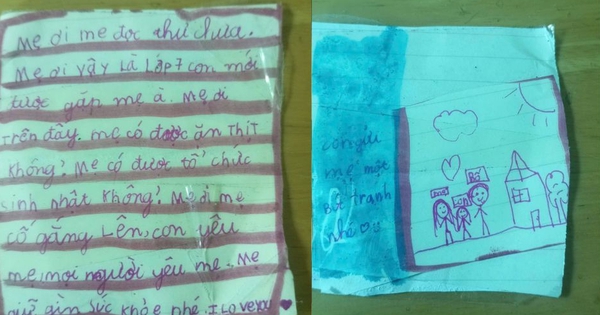 Mẹ ơi mẹ đọc thư chưa.
Mẹ ơi vậy là lớp 7 con mới
được gặp mẹ à. Mẹ ơi
trên đấy. mẹ có được ăn thịt
không! Mẹ có được tổ chức
sinh nhật không! Mẹ ơi mẹ
cố gắng lên, con yêu
mẹ, mọi người yêu mẹ. Mẹ
giữ gìn sức khỏe nhé. I Love you
con gửi
mẹ một
bức tranh
nhé
Con
Bố